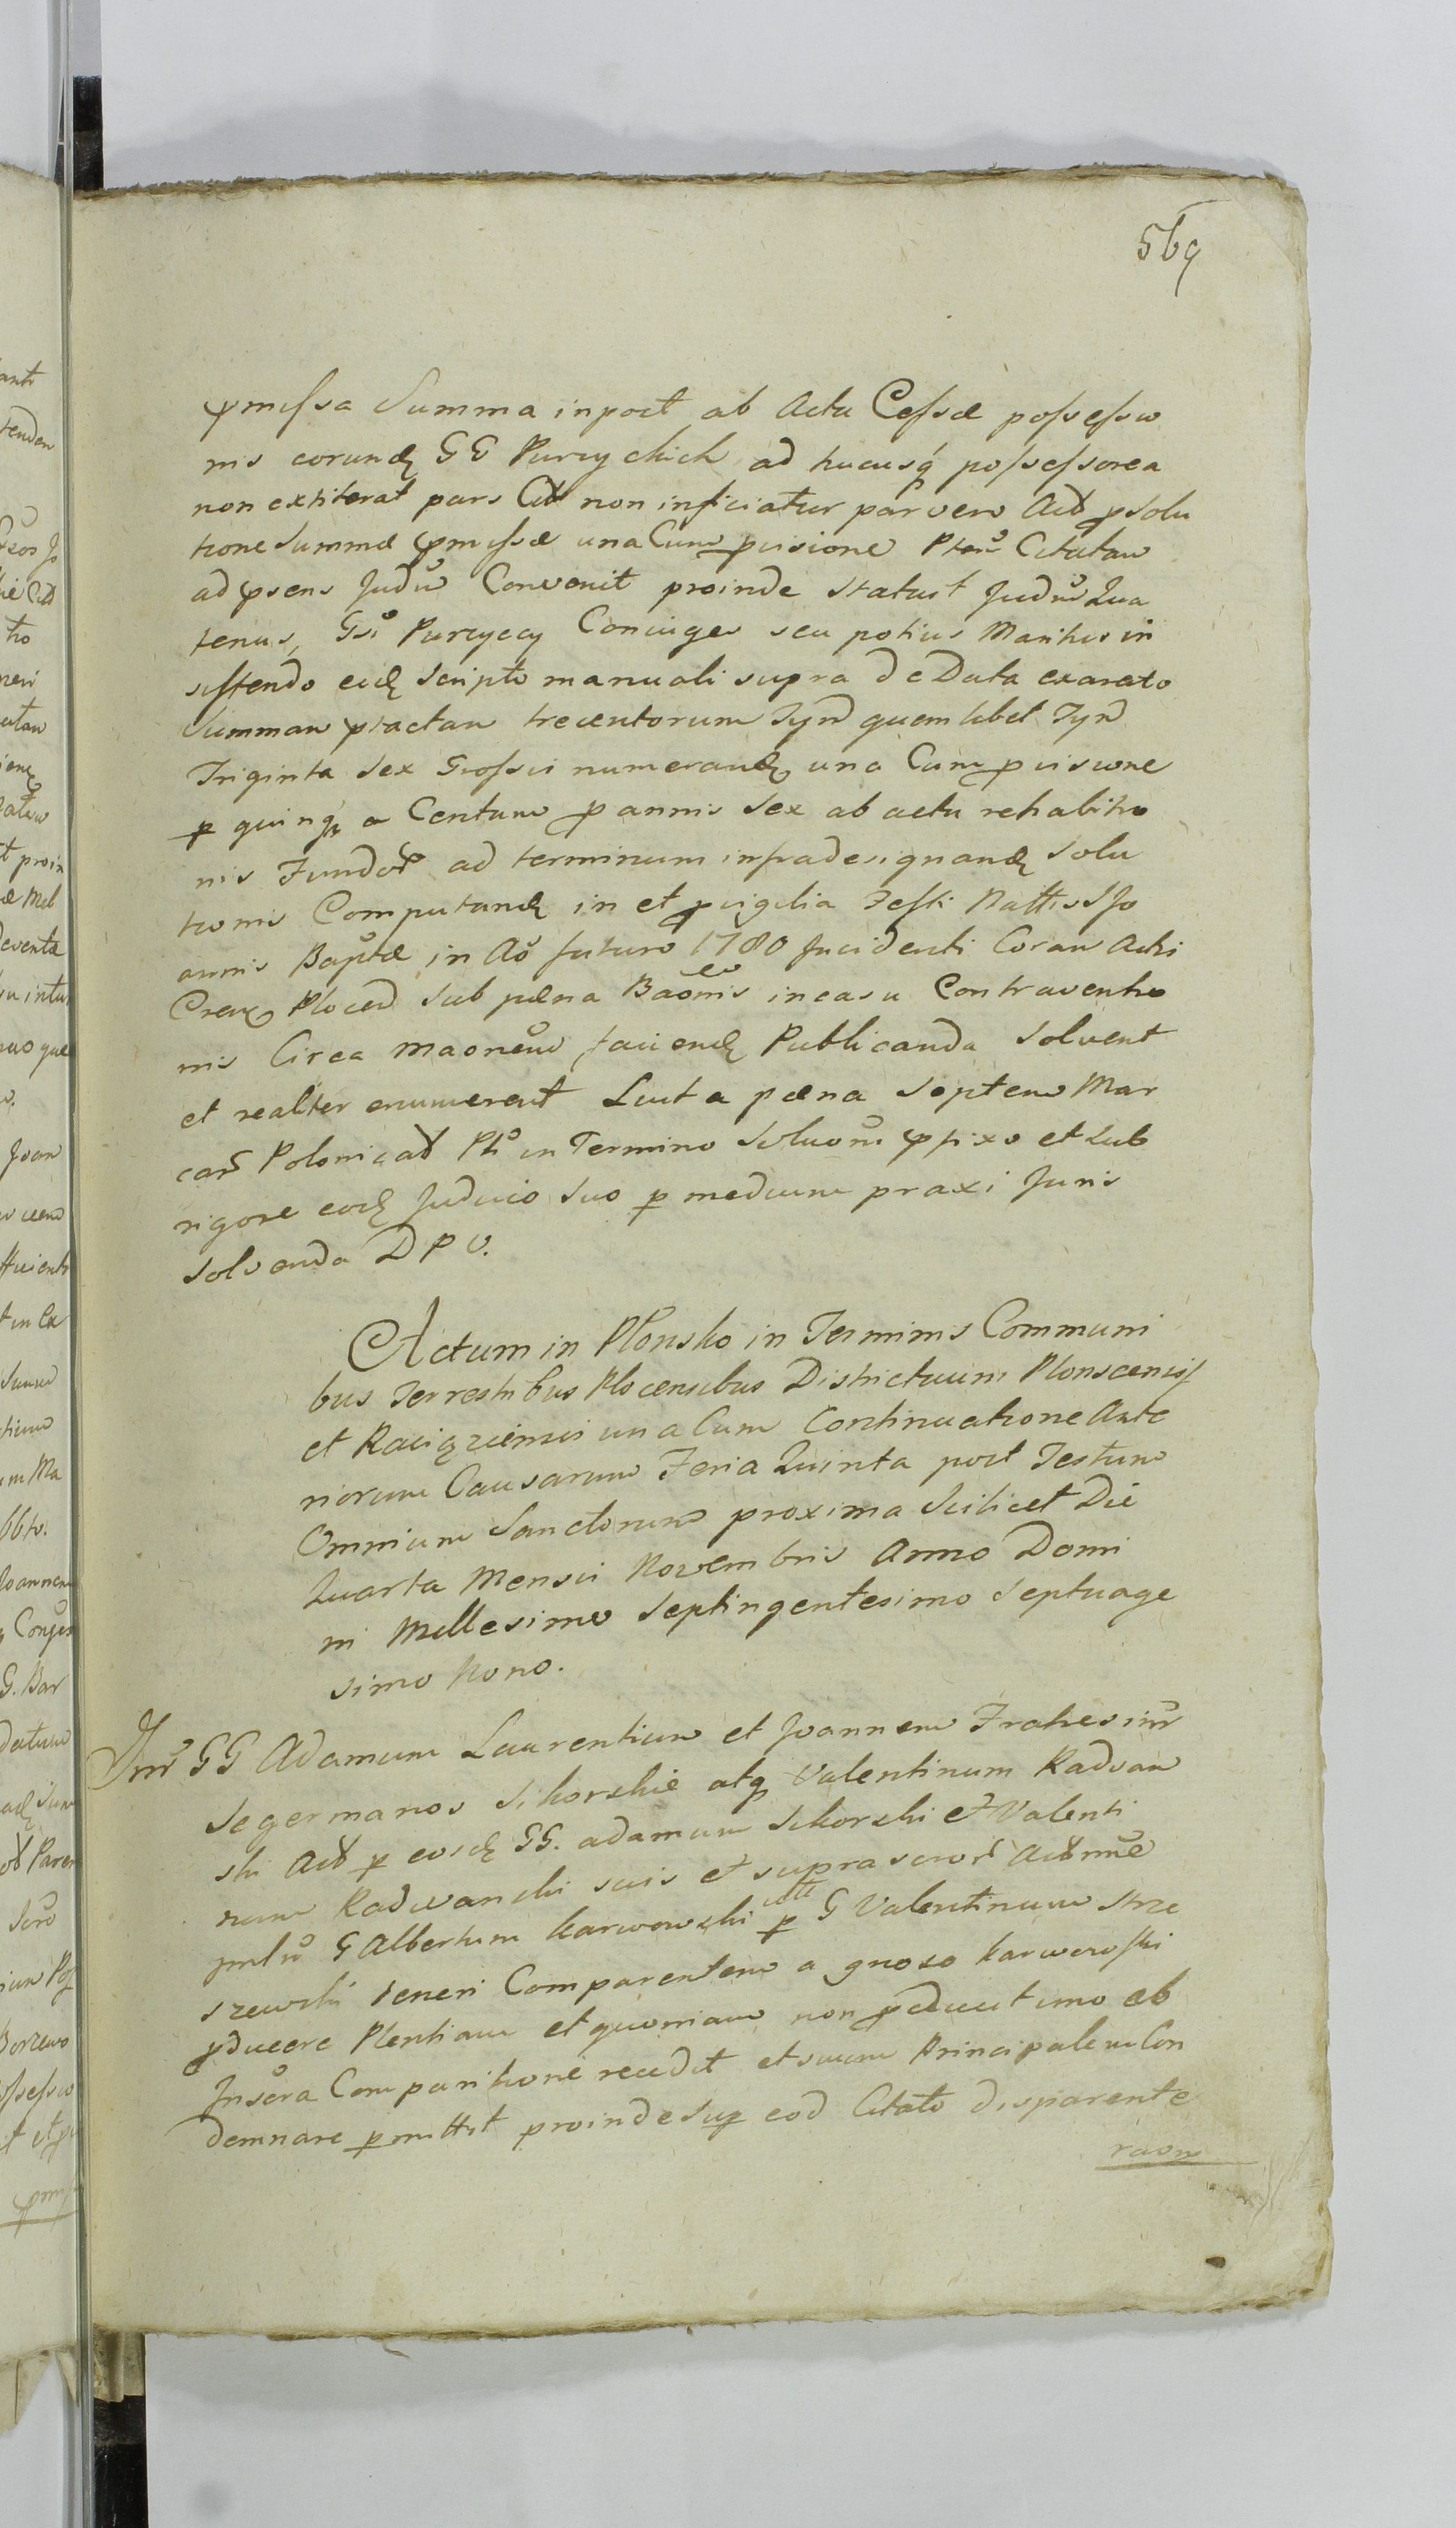 569
pmissa Summa inpost ab Actu Cessæ possessio
nis eorund GG Purzyckich ad hucusq possessorea
non extiterat pars Citt non inficiatur par vero Actt p solu
tione Summæ pmissæ una Cum pvisione Citatam
ad psens Judm Convenit proinde statuit Judm Qua
tenus, Gsi Purzyccy Coniuges seu potius Maritus in
sistendo eid scripto manuali supra de Data exarato
Summam ptactam trecentorum Tynf quemlibet Tynf
Triginta Sex Grossis numerand una Cum pvisione
p quinq a Centum p annis Sex ab actu rehabitio
nis Fundor ad terminum infradesignand Solu
tionis Computand in et p vigilia Festi Nattis S Jo
annis Baptæ in Ao futuro 1780 Incidenti Coram Actis
Plocen Sub pæna Baonis in casu Contraventio
nis Circa maonem faciend Publicanda Solvent
et realiter enumerent Luita pæna Septem Mar
car Polonic Actt in Termino Soluonis pfixo et sub
rigore eod Judicio Suo p medium praxi Juris
Solvenda D P U.
Actum in Plonsko in Terminis Communi
bus Terrestribus Plocensibus Districtuum Plonscensis
et Raciązensis una Cum Continuatione Ante
riorum Causarum Feria Quinta post Festum
Omnium Sanctorum proxima Scilicet Die
Quarta Mensis Novembris Anno Domi
ni Millesimo Septingentesimo Septuage
simo Nono.
Inr GG Adamum Laurentium et Joannem Fratres intr
se germanos Sikorskie atq Valentinum Radvan
ski Actt p eosd GG. adamum Sikorski et Valenti
num Radwanski suis et supra scrort Acttum nne
G Albertum Karwowski citt p G Valentinum Strze
szewski teneri Comparentem a gnoso Karwowski
pducere Plentiam et quoniam non pducit imo ab
Insera Comparitione recedit et suum Principalem Con
demnare pmittit proinde Sup eod Citato disparente
raone